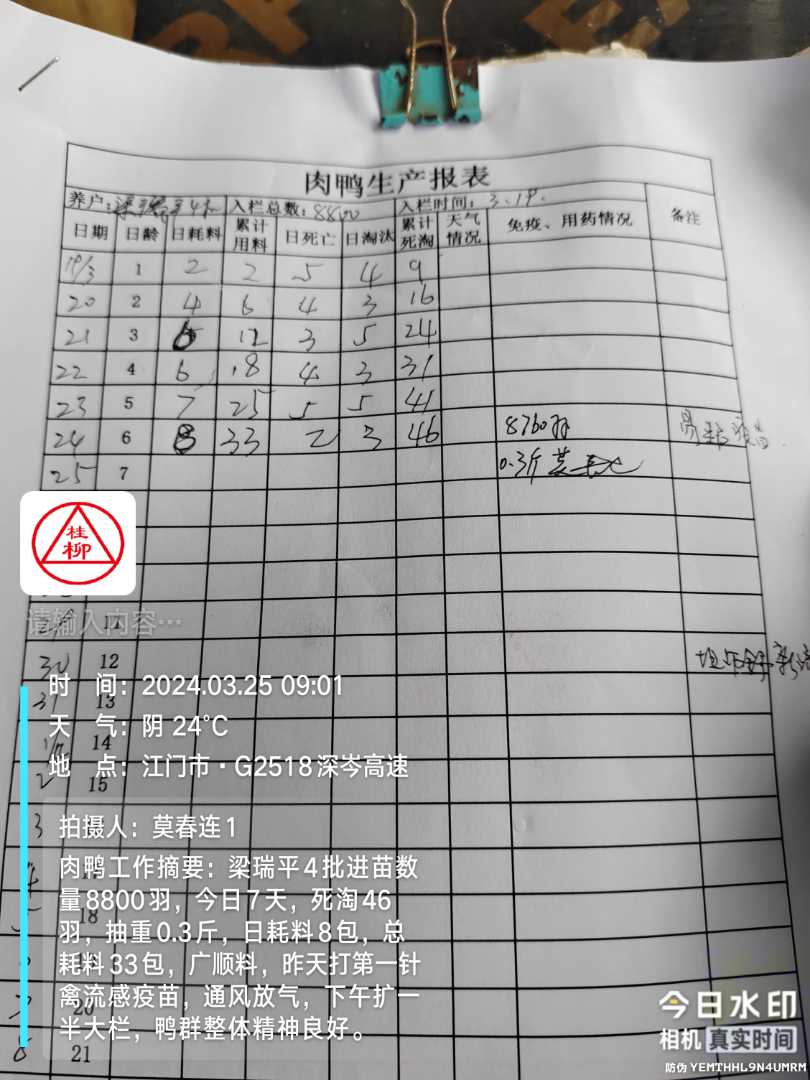 肉鸭生产报表
养户: 梁瑞平4批 入栏总数: 8800 入栏时间: 3.19.
日期 日龄 日耗料 累计用料 日死亡 日淘汰 累计死淘 天气情况 免疫、用药情况 备注
19/3 1 2 2 5 4 9
20 2 4 6 4 3 16
21 3 6 12 3 5 24
22 4 6 18 4 3 31
23 5 7 25 5 5 41
24 6 8 33 2 3 46 8760羽
25 7 0.3斤
桂柳
请输入内容…
11
30 12
31 13
14
2 15
3
4
18
20
8 21
时 间: 2024.03.25 09:01
天 气: 阴 24℃
地 点: 江门市·G2518深岑高速
拍摄人: 莫春连1
肉鸭工作摘要: 梁瑞平4批进苗数
量8800羽，今日7天，死淘46
羽，抽重0.3斤，日耗料8包，总
耗料33包，广顺料，昨天打第一针
禽流感疫苗，通风放气，下午扩一
半大栏，鸭群整体精神良好。
今日水印
相机 真实时间
防伪 YEMTHHL9N4UMRM